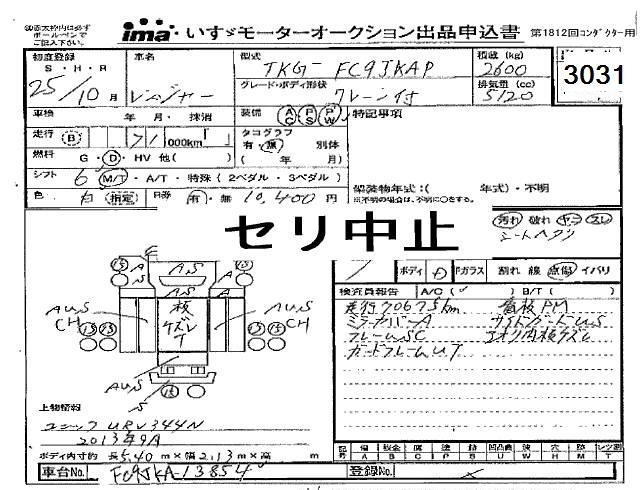 ※太枠内は必ず
ボールペンで
ご記入下さい
ima いすゞモーターオークション出品申込書 第1812回コンダクター用
初度登録 車名 型式 積載(kg)
S・H・R TKG-FC9JKAP 2600
25/10月 レンジャー グレード・ボディ形状 排気量(cc)
クレーン付 5120
3031
車検 年 月・抹消 装備 AC PS PW 特記事項
走行 B 71 000km タコグラフ
有・無 別体
燃料 G・D・HV 他( ) ( 年 月)
シフト 6 M/T・A/T・特殊(2ペダル・3ペダル)
架装物年式:( 年式)・不明
※不明の場合は、不明に○をする。
色 白 (指定) R券 有・無 10,400円
セリ中止
汚れ 破れ ヤニ スレ
シートヘタリ
ボディ Fガラス 割れ 線 点傷 イバリ
検査員報告 A/C(✓) B/T( )
走行70675km 看板PM
ミラーカバーA サイドガードUS
フレームSC
ガードフレームUT
15 A A,S A 15
A,S
AU,S
CH
板
キズレ
T
AU,S
CH
15 15 15 15
AU,S
S 15
上物情報
ユニック URV344N
2013年9月
ボディ内寸約 長5.40m×幅2.13m×高 m
記号 傷 板金 腐 塗 錆 凹凸 波 穴 跡 レンズ割
A B C P S U W H M T
車台No. FC9JKA-13854 登録No.